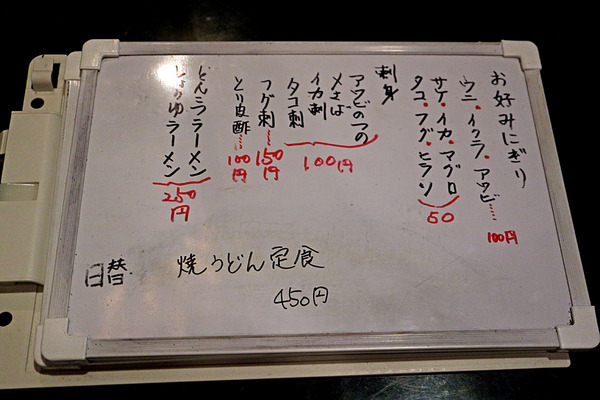 お好みにぎり
ウニ・イクラ・アワビ……100円
サケ・イカ・マグロ
タコ・フグ・ヒラソ
50
刺身
アワビのつの
〆さば
イカ刺
タコ刺
100円
フグ刺……150円
とり皮酢……100円
とんこラーメン
しょうゆラーメン
250円
日替
焼うどん定食
450円